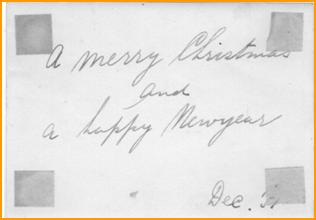 A merry Christmas
and
a happy Newyear
Dec. '31